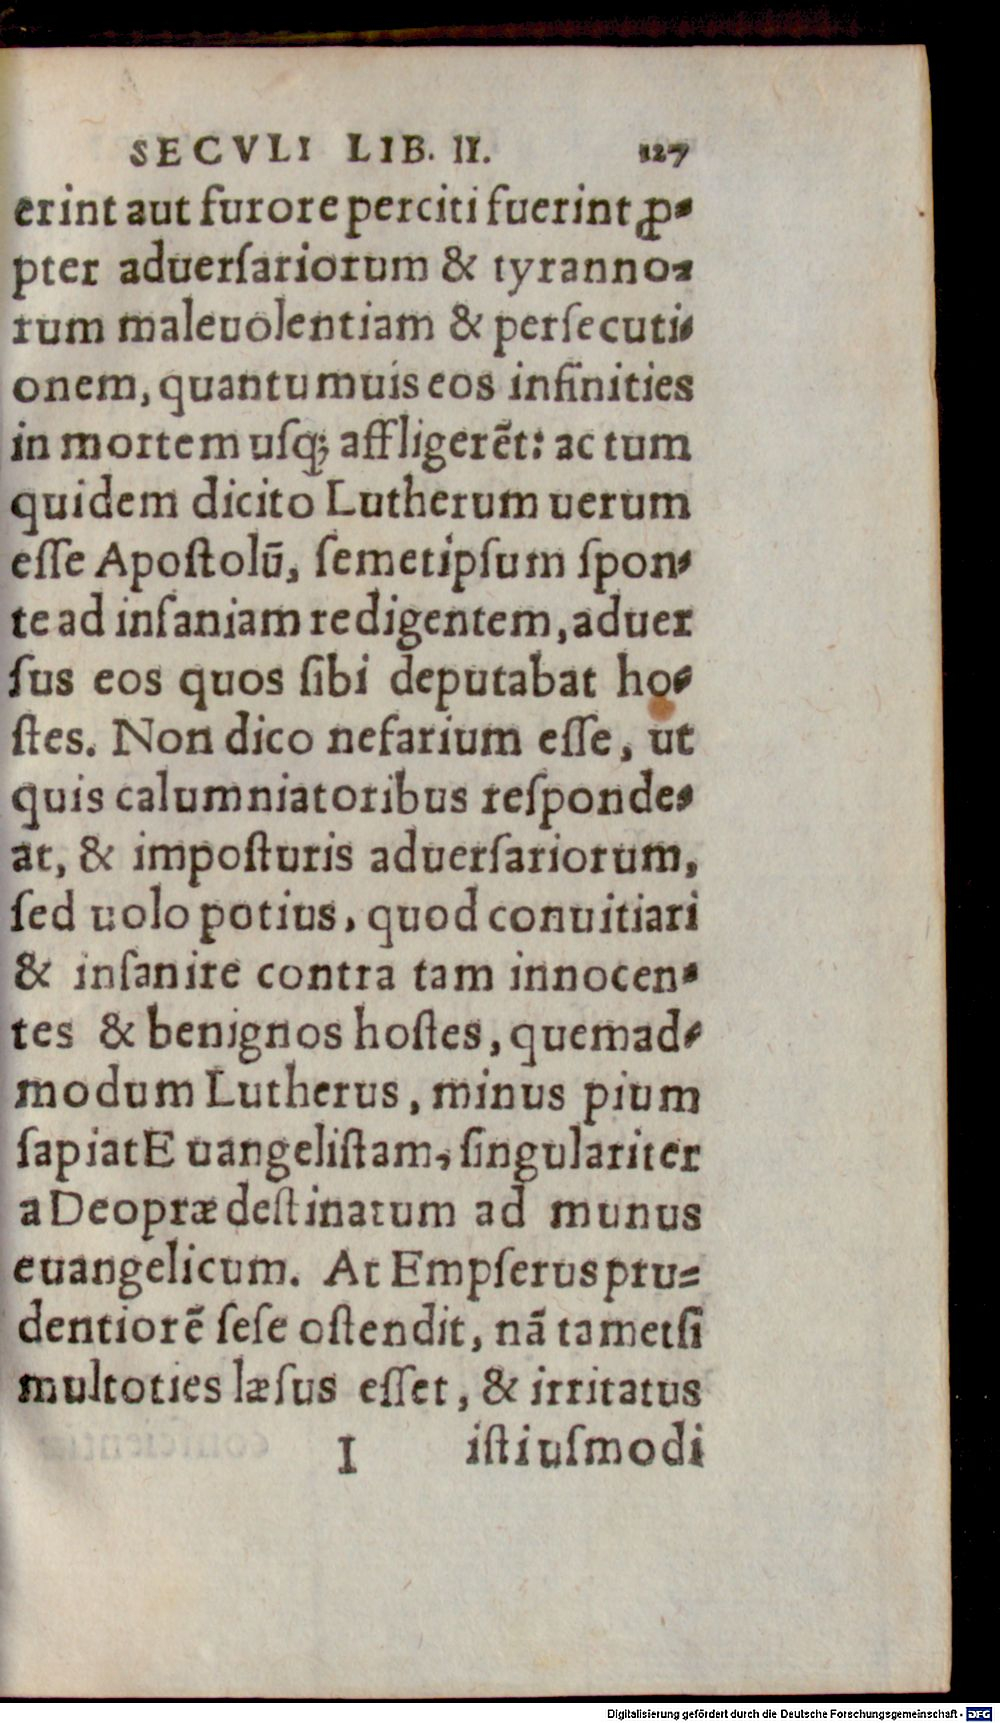 SECVLI LIB. II. 127
erint aut furore perciti fuerint ꝓ-
pter aduerſariorum & tyranno-
rum maleuolentiam & perſecuti-
onem, quantumuis eos infinities
in mortem uſq; affligerēt: ac tum
quidem dicito Lutherum uerum
eſſe Apoſtolū, ſemetipſum ſpon-
te ad inſaniam redigentem, aduer
ſus eos quos ſibi deputabat ho-
ſtes. Non dico nefarium eſſe, ut
quis calumniatoribus reſponde-
at, & impoſturis aduerſariorum,
ſed uolo potius, quod conuitiari
& inſanire contra tam innocen-
tes & benignos hoſtes, quemad-
modum Lutherus, minus pium
ſapiat Euangeliſtam, ſingulariter
a Deo prædeſtinatum ad munus
euangelicum. At Empſerus pru-
dentiorē ſeſe oſtendit, nā tametſi
multoties læſus eſſet, & irritatus
I iſtiuſmodi
Digitalisierung gefördert durch die Deutsche Forschungsgemeinschaft - DFG